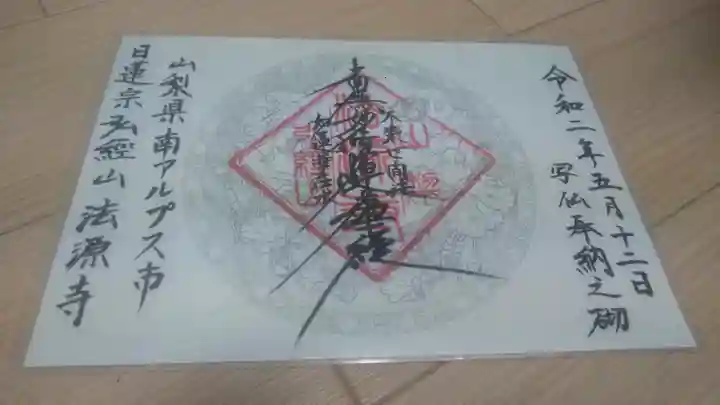 令和二年五月十二日
写仏奉納之砌
不染世間法
南無妙法蓮華経
如蓮華在水
山梨県南アルプス市
日蓮宗弘經山法源寺